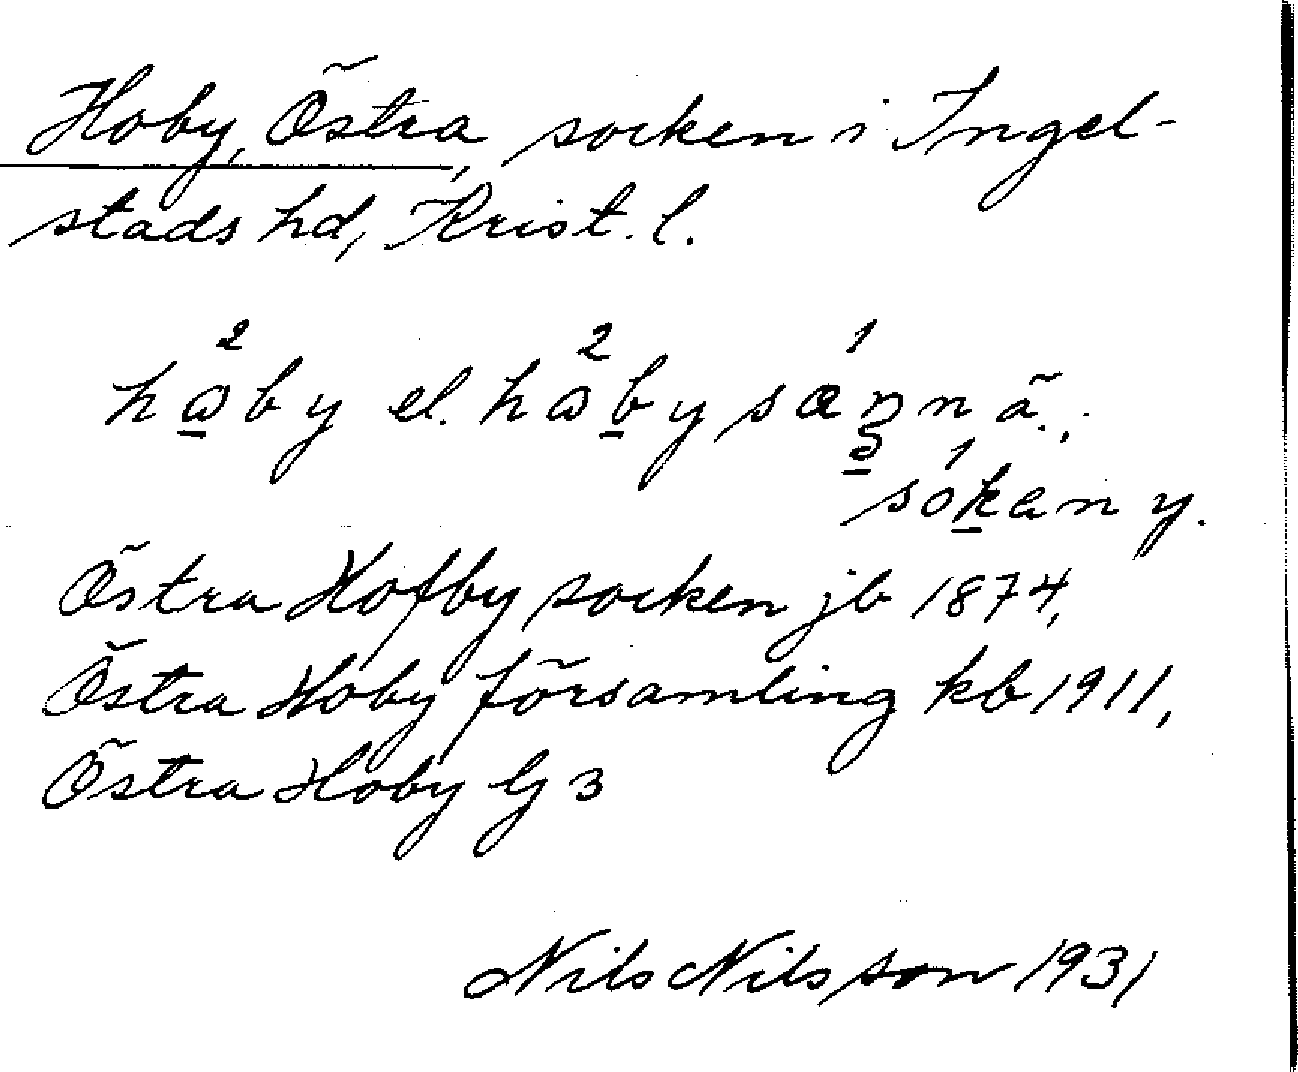 Hoby, Östra, socken i Ingel-
stads hd, Krist. l.
håby el. håbysænnã.,
sókany.
Östra Hofby socken jb 1874,
Östra Hoby församling kb 1911,
Östra Hoby G 3
Nils Nilsson 1931